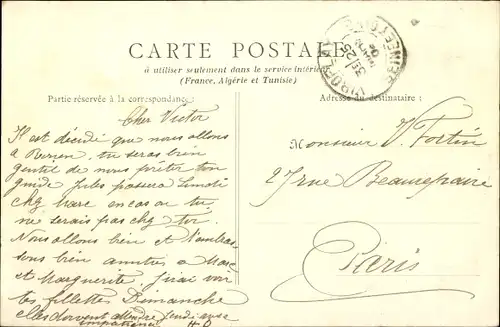 CARTE POSTALE
à utiliser seulement dans le service intérieur
(France, Algérie et Tunisie)
Partie réservée à la correspondance:
Adresse du destinataire:
Cher Victor
Il est décidé que nous allons
a tu seras bien
gentil de nous preter ton
guide Jules passera
chez Marc en cas ou tu
ne serais pas chez toi.
Nous allons bien et
bien amities a Marc
et Marguerite j'irai voir
tes fillettes Dimanche
elles doivent attendre jeudi avec
impatience
Monsieur V. Fortin
27 rue Beaurepaire
Paris